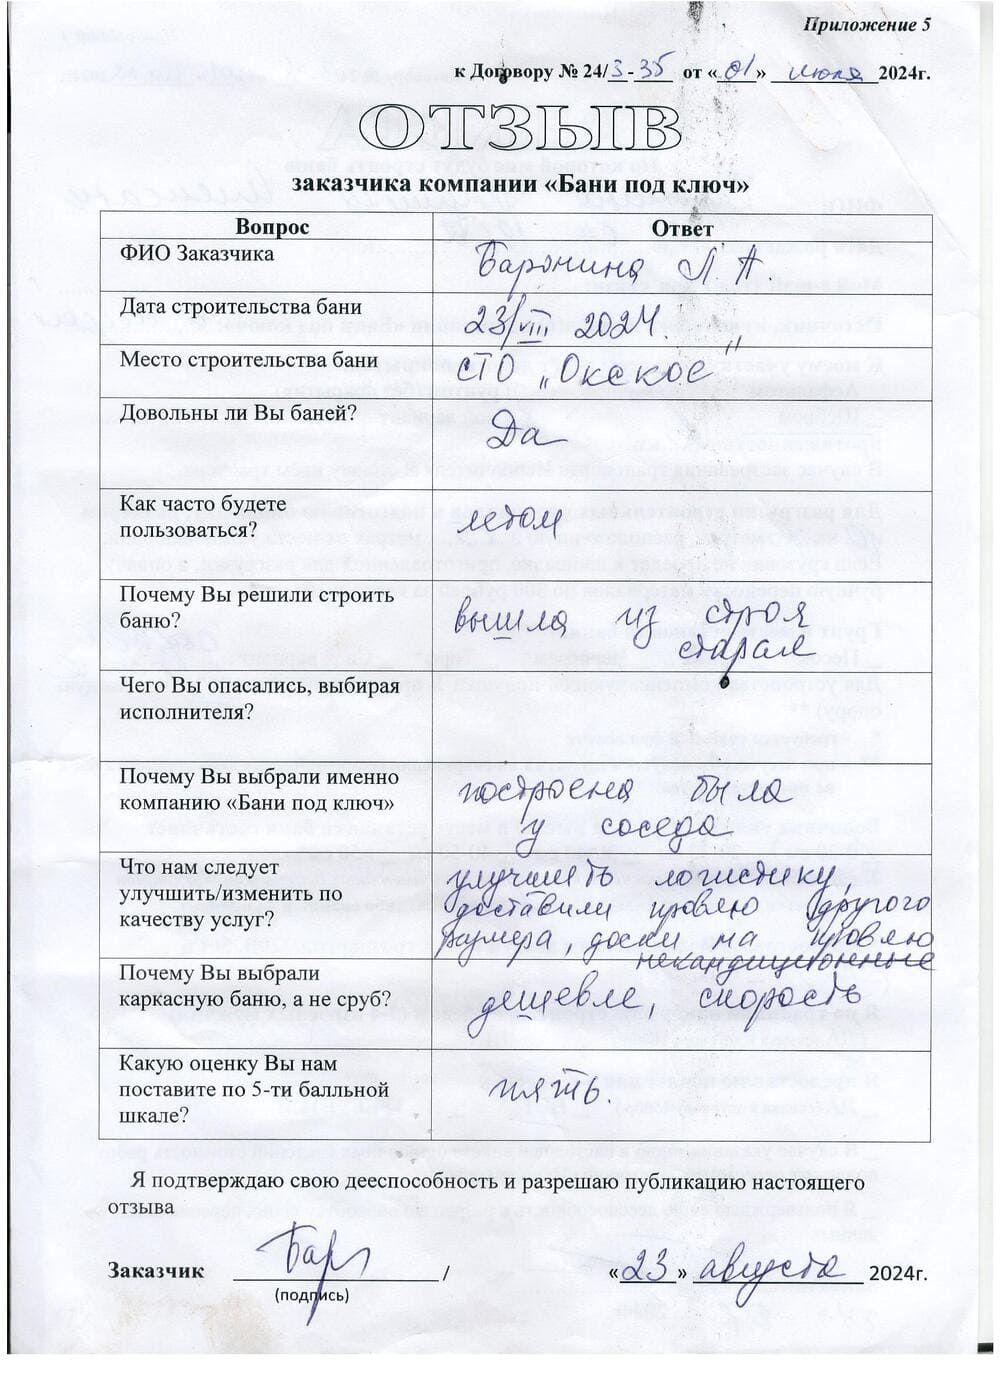 Приложение 5
к Договору № 24/3-35 от «01» июля 2024г.
ОТЗЫВ
заказчика компании «Бани под ключ»
Вопрос Ответ
ФИО Заказчика Баронина Л. А
Дата строительства бани 23/VIII 2024.
Место строительства бани СТО „Окское"
Довольны ли Вы баней? Да
Как часто будете
пользоваться? летом
Почему Вы решили строить
баню? вышла из строя
старая
Чего Вы опасались, выбирая
исполнителя?
Почему Вы выбрали именно
компанию «Бани под ключ» построена была
у соседа
Что нам следует
улучшить/изменить по
качеству услуг? улучшить логистику,
доставили кровлю другого
размера, доски на кровлю
некандиционные
Почему Вы выбрали
каркасную баню, а не сруб? дешевле, скорость
Какую оценку Вы нам
поставите по 5-ти балльной
шкале? пять.
Я подтверждаю свою дееспособность и разрешаю публикацию настоящего
отзыва
Заказчик Бар / «23» августа 2024г.
(подпись)